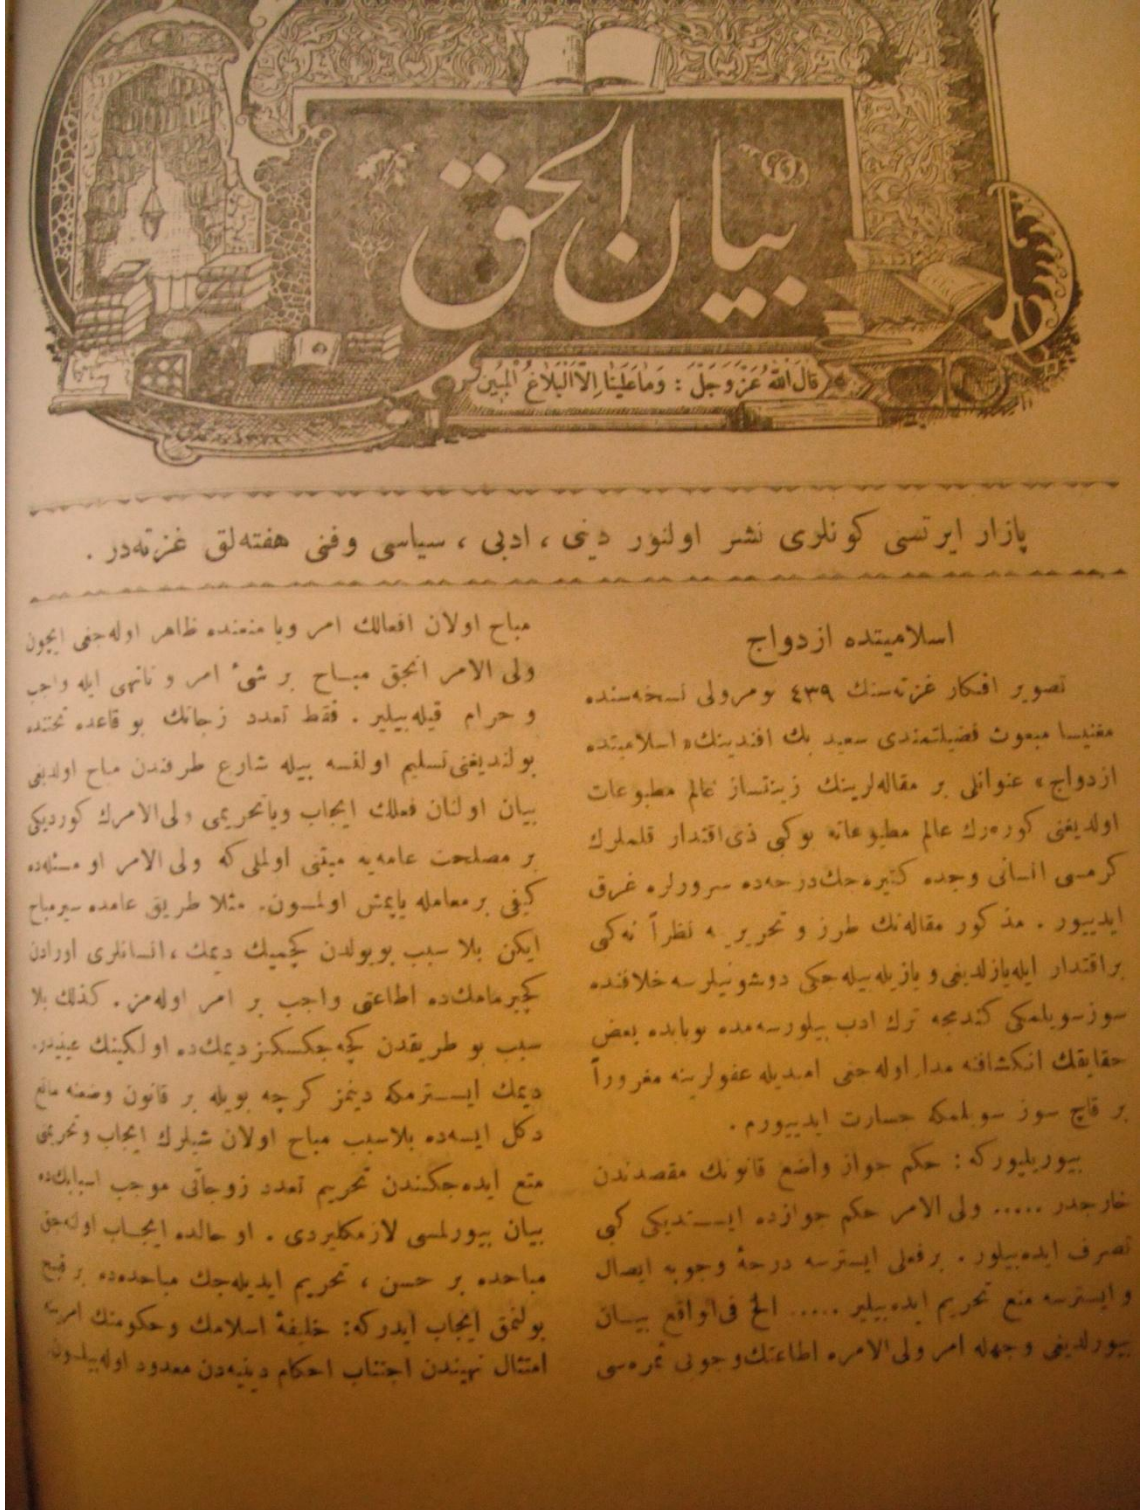 بيان الحق
قال الله عز وجل : وما علينا الا البلاغ المبين
پازار ايرتسى كونلرى نشر اولنور دينى ، ادبى ، سياسى وفنى هفته‌لق غزته‌در .
اسلاميتده ازدواج
تصوير افكار غزته‌سنك ٤٣٩ نومرولى نسخه‌سنده
مغنيسا مبعوث فضيلتمندى سعيد بك افندينك « اسلاميتده
ازدواج » عنوانلى بر مقاله‌لرينك زينتساز عالم مطبوعات
اولديغنى كوره‌رك عالم مطبوعاته بوكبى ذى‌اقتدار قلملرك
كرمسى انسانى وجده كتيره‌جك‌درجه‌ده سرورلره غرق
ايدييور . مذكور مقاله‌نك طرز و تحريرينه نظراً نه‌كبى
براقتدار ايله‌يازلديغى و يازيله‌بيله‌جكى دوشونيلرسه خلافنده
سوزسويلمكى كندمجه ترك ادب بيلورسه‌مده بوبابده بعض
حقايقك انكشافنه مدار اوله‌جغى اميديله عفولرينه مغروراً
بر قاچ سوز سويلمكه جسارت ايدييورم .
بيوريليوركه : حكم جواز واضع قانونك مقصدندن
خارجدر ..... ولى الامر حكم جوازده ايستديكى كبى
تصرف ايده‌بيلور . برفعلى ايسترسه درجهٔ وجوبه ايصال
و ايسترسه منع تحريم ايده‌بيلير ..... الخ فى‌الواقع بيان
بيورلديغى وجهله امر ولى‌الامره اطاعتك‌وجوبى ثمره‌سى
مباح اولان افعالك امر ويا منعنده ظاهر اوله‌جغى ايچون
ولى الامر انجق مباح بر شئ امر و نانهى ايله واجب
و حرام قيله‌بيلير . فقط تعدد زجاتك بو قاعده تحتنده
بولنديغى‌تسليم اولنسه بيله شارع طرفندن مباح اولديغى
بيان اولنان فعلك ايجاب وياتحريمى ولى‌الامرك كورديكى
بر مصلحت عامه‌يه مبتنى اولملى‌كه ولى الامر او مسئله‌ده
كيفى برمعامله ياپمش اولمسون. مثلا طريق عامده سيرمباح
ايكن بلا سبب بويولدن كچميك ديمك ، انسانلرى اورادن
كچيرمامك‌ده اطاعتى واجب بر امر اوله‌مز . كذلك بلا
سبب بو طريقدن كچه‌جكسكز ديمك‌ده اولكينك عينيدر.
ديمك ايسترمكه دينمز كرچه بويله بر قانون وضعنه مانع
دكل ايسه‌ده بلاسبب مباح اولان شيلرك ايجاب وتحريمنى
منع ايده‌جكندن تحريم تعدد زوجاتى موجب اسبابك‌ده
بيان بيورلمسى لازمكليردى . او حالده ايجاب اوله‌جق
مباحده بر حسن ، تحريم ايديله‌جك مباحده‌ده بر قبح
بولنمق ايجاب ايدركه: خليفهٔ اسلامك وحكومتك امرينه
امتثال نهيندن اجتناب احكام دينيه‌دن معدود اوله‌بيلسون.